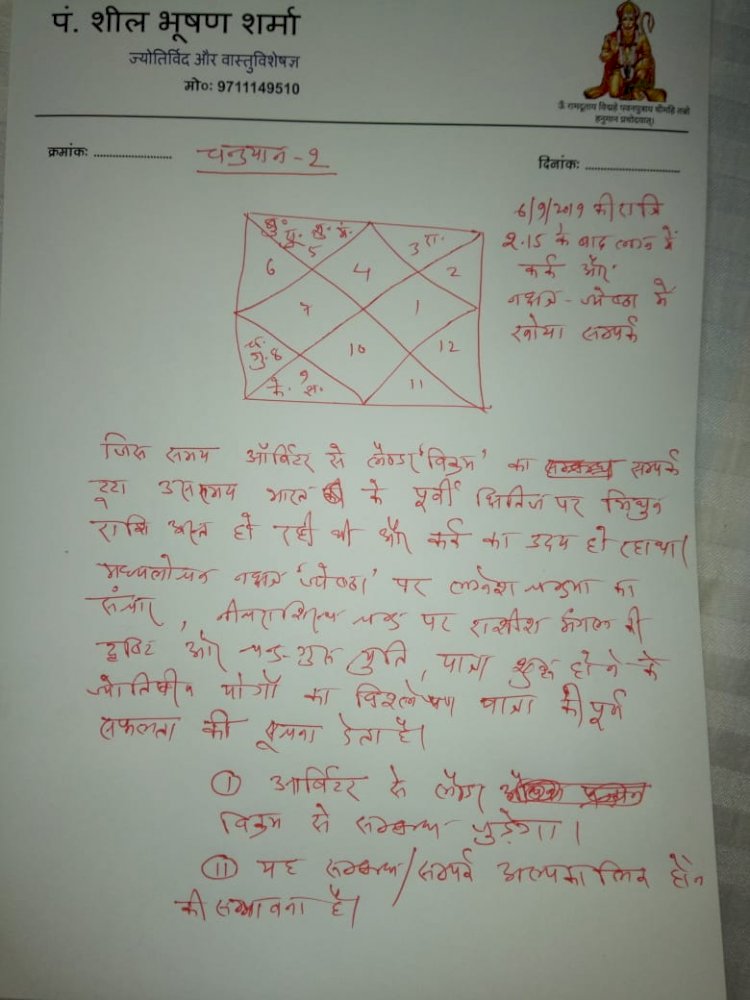 पं. शील भूषण शर्मा
ज्योतिर्विद और वास्तुविशेषज्ञ
मो०: 9711149510
ॐ रामदूताय विद्महे पवनपुत्राय धीमहि तन्नो
हनुमान प्रचोदयात्।
क्रमांक: ....................
चन्द्रयान - २
दिनांक: ........................
6/9/2019 की रात्रि
2.15 के बाद लग्न में
कर्क और
नक्षत्र - ज्येष्ठा में
खोया सम्पर्क
बु. सू. शु. मं.
5
6
4
3 रा.
2
7
1
चं.
गु. 8
10
12
के. 9 श.
11
जिस समय ऑर्बिटर से लैण्डर 'विक्रम' का सम्पर्क
टूटा उस समय भारत के पूर्वी क्षितिज पर मिथुन
राशि अस्त हो रही थी और कर्क का उदय हो रहा था।
मध्यलोचन नक्षत्र 'ज्येष्ठा' पर लग्नेश चन्द्रमा का
संचार, नीचराशिस्थ चन्द्र पर राशीश मंगल की
दृष्टि और चन्द्र-गुरु युति, यात्रा शुरू होने के
ज्योतिषीय योगों का विश्लेषण यात्रा की पूर्ण
सफलता की सूचना देता है।
I आर्बिटर से लैण्डर
विक्रम से सम्बन्ध जुड़ेगा।
II यह सम्बन्ध/सम्पर्क अल्पकालिक होने
की सम्भावना है।